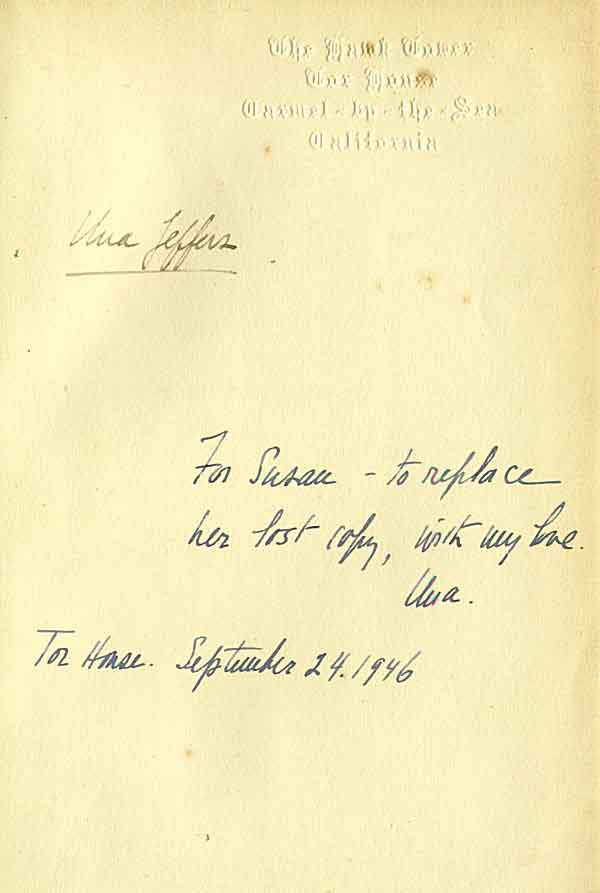 The Hawk Tower
Tor House
Carmel-by-the-Sea
California
Una Jeffers
For Susan – to replace
her lost copy, with my love.
Una.
Tor House. September 24. 1946